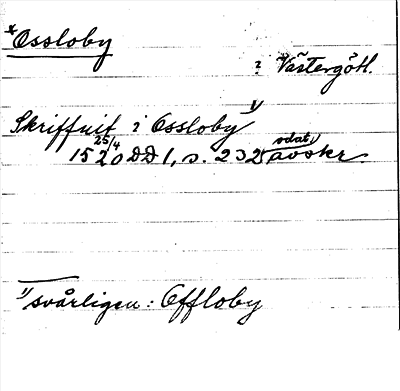 *Ossloby
? Västergötl.
Skriffuit i Ossloby 1)
25/4
1520 DD 1, s. 232 odat. avskr.
1) svårligen: Offloby